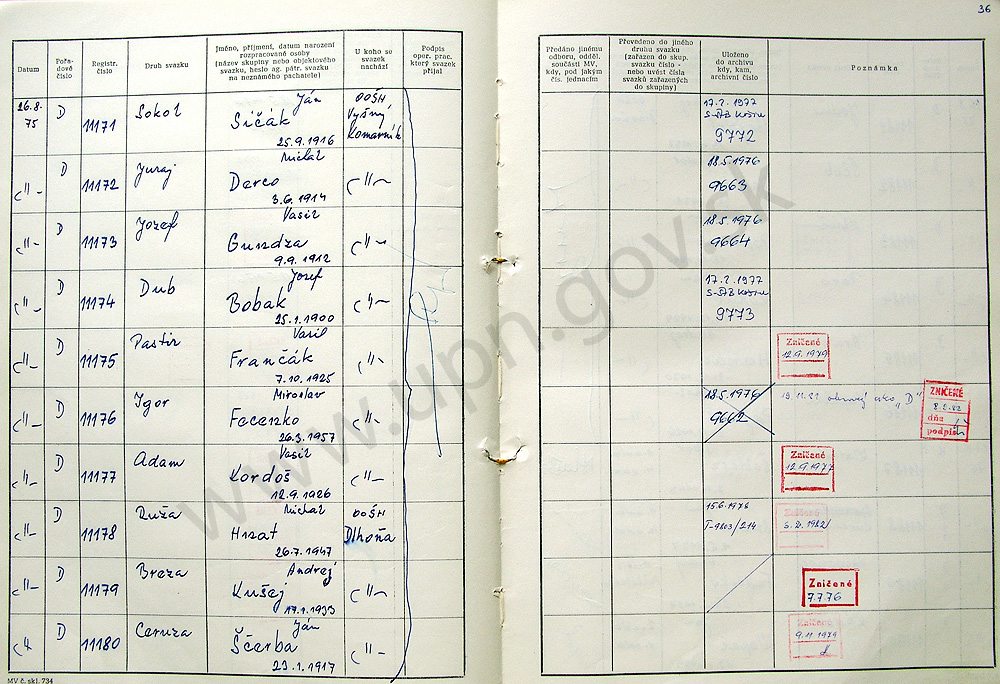 36
Datum
Pořa-
dové
číslo
Registr.
číslo
Druh svazku
Jméno, příjmení, datum narození
rozpracované osoby
(název skupiny nebo objektového
svazku, heslo ag. pátr. svazku
na neznámého pachatele)
U koho se
svazek
nachází
Podpis
oper. prac.
který svazek
přijal
Předáno jinému
odboru, odděl.
součásti MV,
kdy, pod jakým
čís. jednacím
Převedeno do jiného
druhu svazku
(zařazen do skup.
svazku číslo -
nebo uvést čísla
svazků zařazených
do skupiny)
Uloženo
do archivu
kdy, kam,
archivní číslo
Poznámka
26.8.
75
D
11171
Sokol
Ján
Sičák
25.9.1916
OOŠH
Vyšný
Komarník
17.2.1977
S-ŠtB Košice
9772
-"-
D
11172
Juraj
Michal
Derco
3.6.1914
-"-
18.5.1976
9663
-"-
D
11173
Jozef
Vasil
Gundza
9.9.1912
-"-
18.5.1976
9664
-"-
D
11174
Dub
Jozef
Bobak
25.1.1900
-"-
17.2.1977
S-ŠtB Košice
9773
-"-
D
11175
Pastir
Vasil
Frančák
7.10.1925
-"-
Zničené
12.9.1979
-"-
D
11176
Igor
Miroslav
Fecenko
26.3.1957
-"-
18.5.1976
9662
19.11.81
ako "D"
ZNIČENÉ
8.2.82
dňa
podpis
-"-
D
11177
Adam
Vasil
Kordoš
12.9.1926
-"-
Zničené
12.9.1977
-"-
D
11178
Ruža
Michal
Hnat
26.7.1947
OOŠH
Dlhoňa
15.6.1978
T-9803/214
Zničené
-"-
D
11179
Breza
Andrej
Kušej
17.1.1933
-"-
Zničené
7.7.76
-"-
D
11180
Ceruza
Ján
Ščerba
23.1.1917
-"-
Zničené
9.11.1979
MV č. skl. 734
www.upn.gov.sk